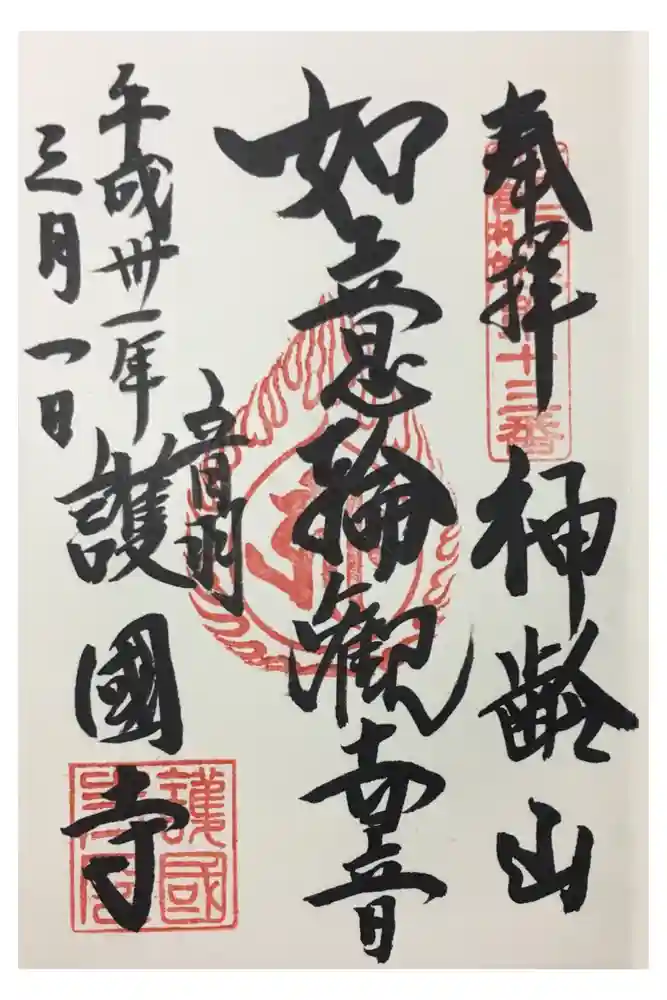 奉拝
十三番
神齢山
如意輪観世音
音羽
護國寺
平成卅一年
三月一日
護國